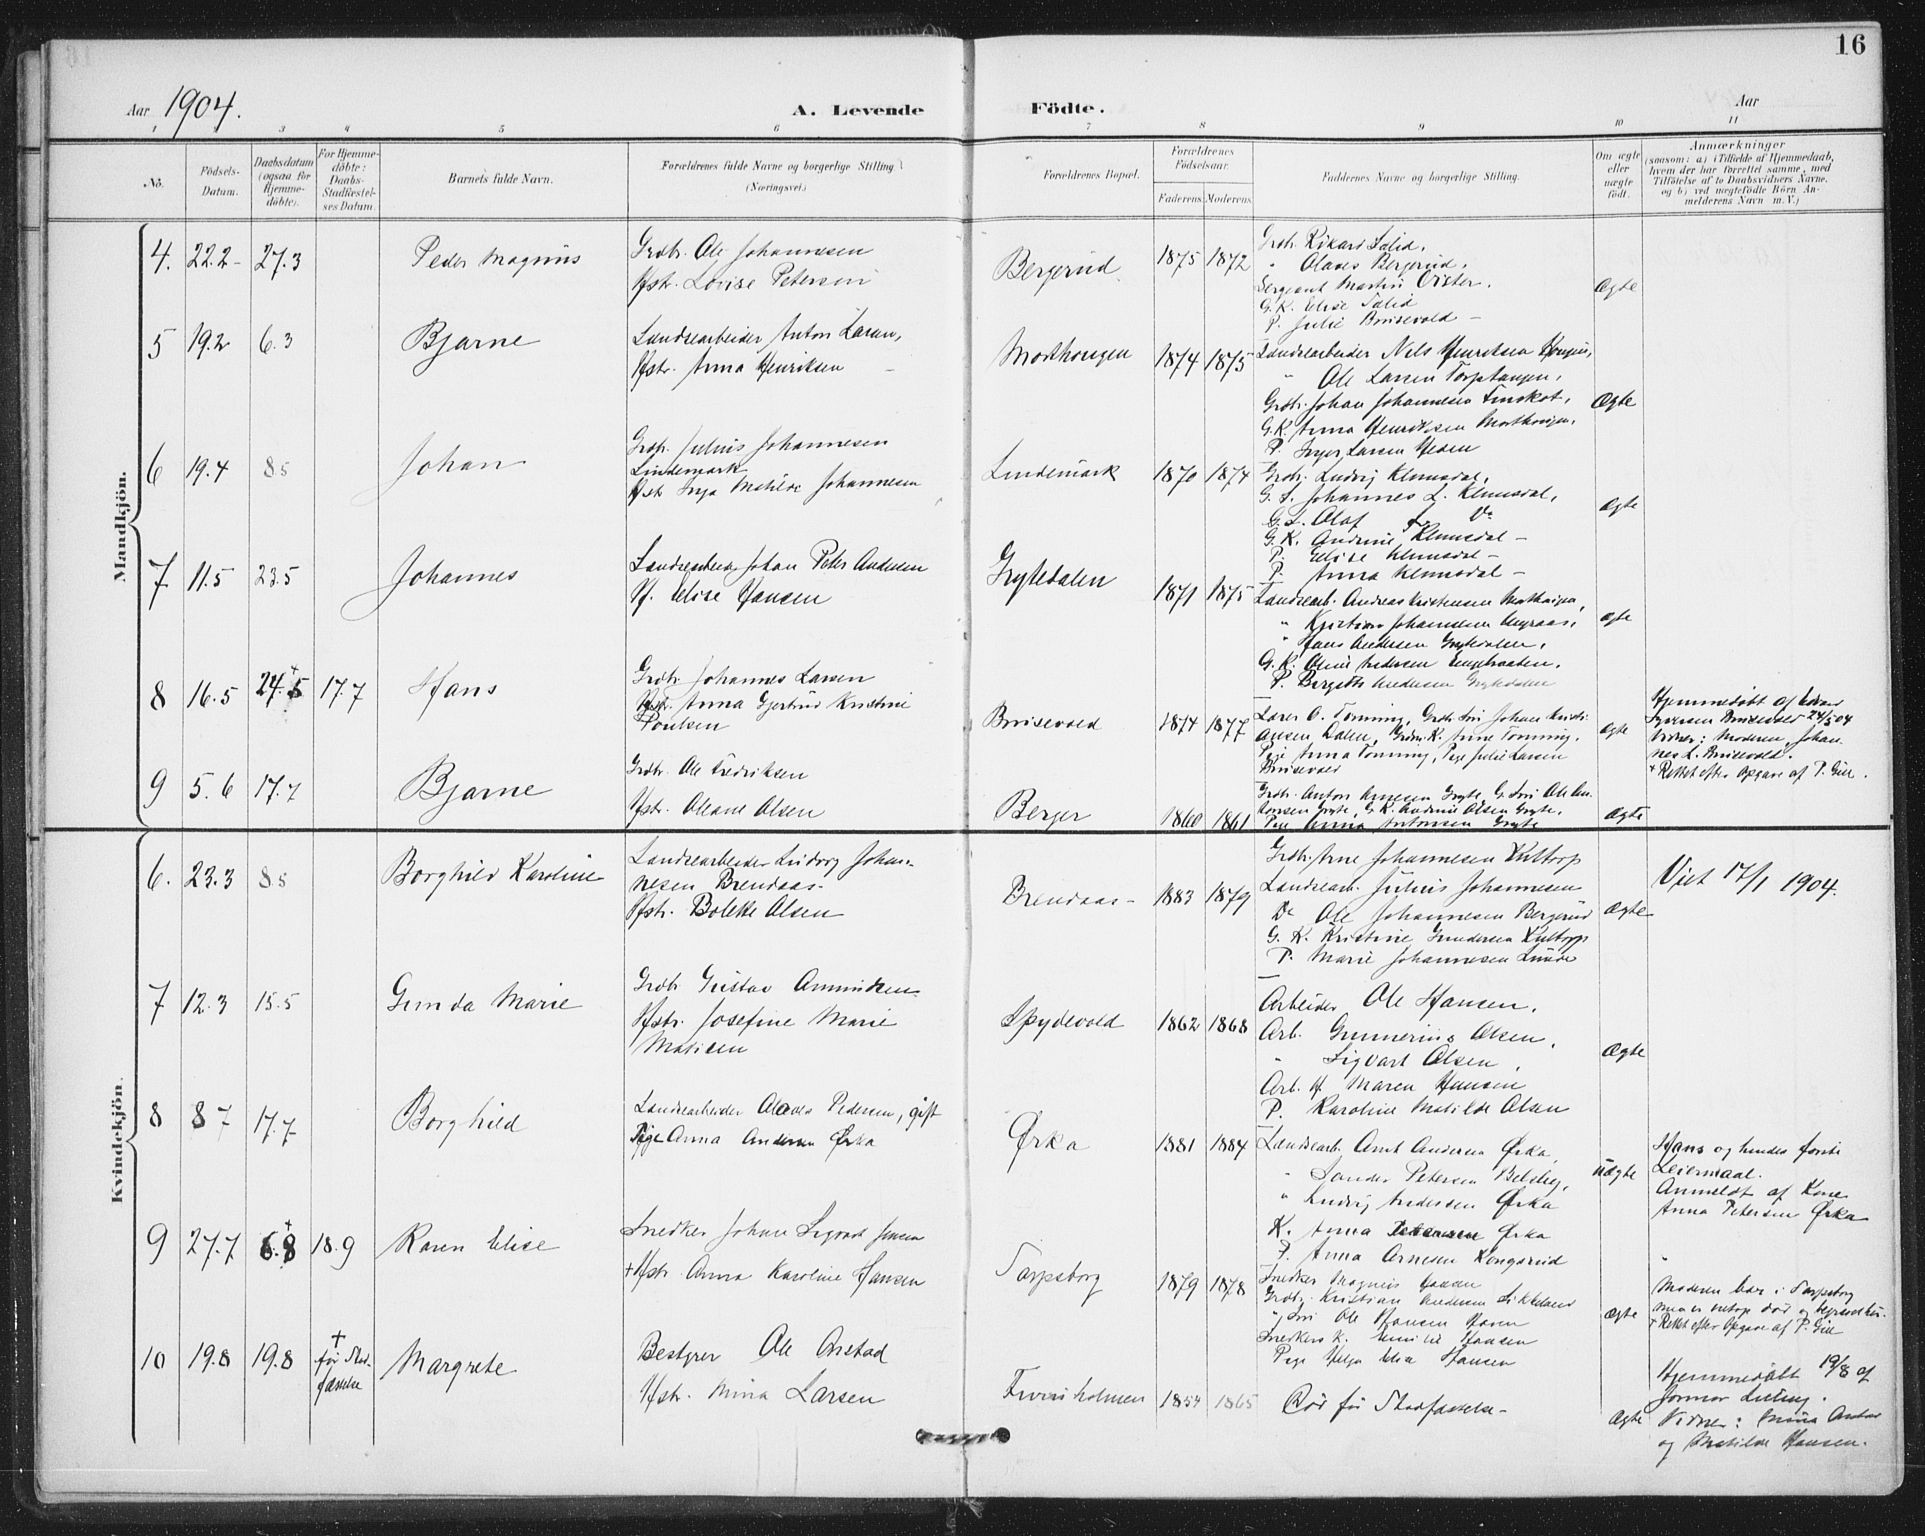 16
Aar 1904.
A. Levende Födte.
Aar
1 2 3 4 5 6 7 8 9 10 11
No.
Födsels-
Datum.
Daabsdatum
(ogsaa for
Hjemme-
döbte).
For Hjemme-
döbte:
Daabs-
Stadfæstel-
ses Datum.
Barnets fulde Navn.
Forældrenes fulde Navne og borgerlige Stilling
(Næringsvei.)
Forældrenes Bopæl.
Forældrenes
Födselsaar.
Faderens
Moderens
Faddernes Navne og borgerlige Stilling.
Om ægte
eller
uægte
födt.
Anmærkninger
(saasom: a) i Tilfælde af Hjemmedaab,
hvem der har forrettet samme, med
Tilföielse af to Daabsvidners Navne,
og b) ved uegtefödte Börn An-
melderens Navn m. V.)
Mandkjön.
4. 22.2 - 27.3 Peder Magnus
Grdbr. Ole Johannesen
Hstr. Lovise Petersen
Bergerud 1875 1872
Olaves Bergerud.
Sergeant Martin
P. Julie Brusevold -
Ægte
5 19.2 6.3 Bjarne
Landarbeider Anton Larsen,
Hstr. Anna Henriksen
Morthaugen 1874 1875
Landearbeider Nils Henriksen
" Ole Larsen Torptangen,
Grdbr. Johan Johannesen
G.K. Anna Henriksen Morthaugen,
P. Inger Larsen
Ægte
6 19.4 8.5 Johan
Grdbr. Julius Johannesen
Lindemark
Hstr. Inga Matilde Johannesen
Lindemark 1870 1874
Grdbr. Ludvig Klemsdal,
G. S. Johannes L. Klemsdal,
G. S. Olaf L. Do
G. K. Andrine Klemsdal -
P. Elise Klemsdal -
P. Anna Klemsdal -
Ægte
7 11.5 23.5 Johannes
Landearbeid. Johan Peter Andersen
H. Elise Hansen
Grytedalen 1871 1875
Landearb. Andreas Kristensen Morthaugen,
" Kristian Johannesen
" Hans Andersen Grytedalen,
G. K. Oline Andersen Engebraaten.
P. Bergitte Andersen Grytedalen
Ægte
8 16.5 24.+5 17.7 Hans
Grdbr. Johannes Larsen
Hstr. Anna Gjertrud Kristine
Poulsen
Brusevold 1874 1877
Lærer O. Tomming, Grdbr. Søn Johan Kristi-
ansen Dalen, Grdbr. K. Anne Tomming,
Pige Anna Tomming, Pige Julie Larsen
Brusevold
Ægte
Hjemmedöbt af
Iversen Brusevold 24/5 04
Vidner: Moderen, Johan-
nes L. Brusevold.
+ Rettet efter Opgave af P. Gill.
9 5.6 17.7 Bjarne
Grdbr. Ole Fredriksen
Hstr. Oleane Olsen
Berger 1860 1861
Grdbr. Anton Arnesen Gryte, G. Søn Ole An-
tonsen Gryte, G. K. Andrine Olsen Gryte,
Pige Anna Antonsen Gryte
Ægte
Kvindekjön.
6. 23.3 8.5 Borghild Karoline
Landearbeider Ludvig Johan-
nesen Brendaas-
Hstr. Bolette Olsen
Brendaas - 1883 1879
Grdbr. Arne Johannesen Kultorp
Landearb. Julius Johannesen
Do Ole Johannesen Bergerud
G. K. Kristine Gundersen Kultorp
P. Marie Johannesen Lunde
Ægte
Viet 17/1 1904.
7 12.3 15.5 Gunda Marie
Grdbr. Gustav Amundsen
Hstr. Josefine Marie
Matisen
Spydevold 1862 1868
Arbeider Ole Hansen,
Arb. Gunnerius Olsen,
" Sigvart Olsen,
Arb. H. Maren Hansen
P. Karoline Matilde Olsen
Ægte
8 8 7 17.7 Borghild
Landearbeider Olaves Pedersen, gift
Pige Anna Andersen Ørka
Ørka 1881 1884
Landearb. Anton Andersen Ørka,
" Sander Petersen
" Ludvig Andersen Ørka
K. Anna Petersen Ørka
P. Anna Arnesen Kongsrud
Uægte
Hans og hendes første
Leiermaal.
Anmeldt af Kone
Anna Petersen Ørka
9 27.7 +6.8 18.9 Karen Elise
Snedker Johan Sigvart Jensen
+ Hstr. Anna Karoline Hansen
Sarpsborg 1879 1878
Snedker Magnus Hansen
Grdbr. Kristian Andersen Sikkeland
" Søn Ole Hansen Haven
Snedkers K. Emilie Hansen
Pige Helga Elea Hansen
Ægte
Moderen bor i Sarpsborg
+ Rettet efter Opgave af P. Gill
10 19.8 19.8 + før Stad-
fæstelse
Margrete
Bestyrer Ole Onstad
Hstr. Mina Larsen
Furuholmen 1854 1865
Død før Stadfæstelse -
Ægte
Hjemmedöbt 19/8 af
Jormor
Vidner: Mina Onstad
og Matilde Hansen.